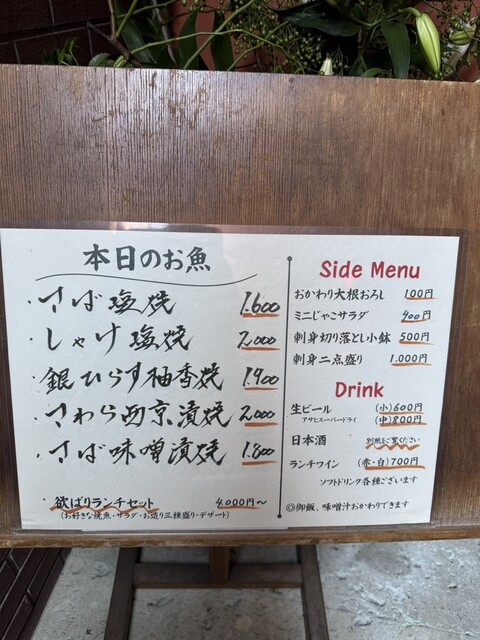 本日のお魚
・さば塩焼 1.600
・しゃけ塩焼 2,000
・銀ひらす柚香焼 1.900
・さわら西京漬焼 2,000
・さば味噌漬焼 1.800
・欲ばりランチセット 4,000円～
(お好きな焼魚・サラダ・お造り三種盛り・デザート)
Side Menu
おかわり大根おろし 100円
ミニじゃこサラダ 400円
刺身切り落とし小鉢 500円
刺身二点盛り 1.000円
Drink
生ビール (小)600円
アサヒスーパードライ (中)800円
日本酒 別紙をご覧ください
ランチワイン (赤・白)700円
ソフトドリンク各種ございます
◎御飯、味噌汁おかわりできます